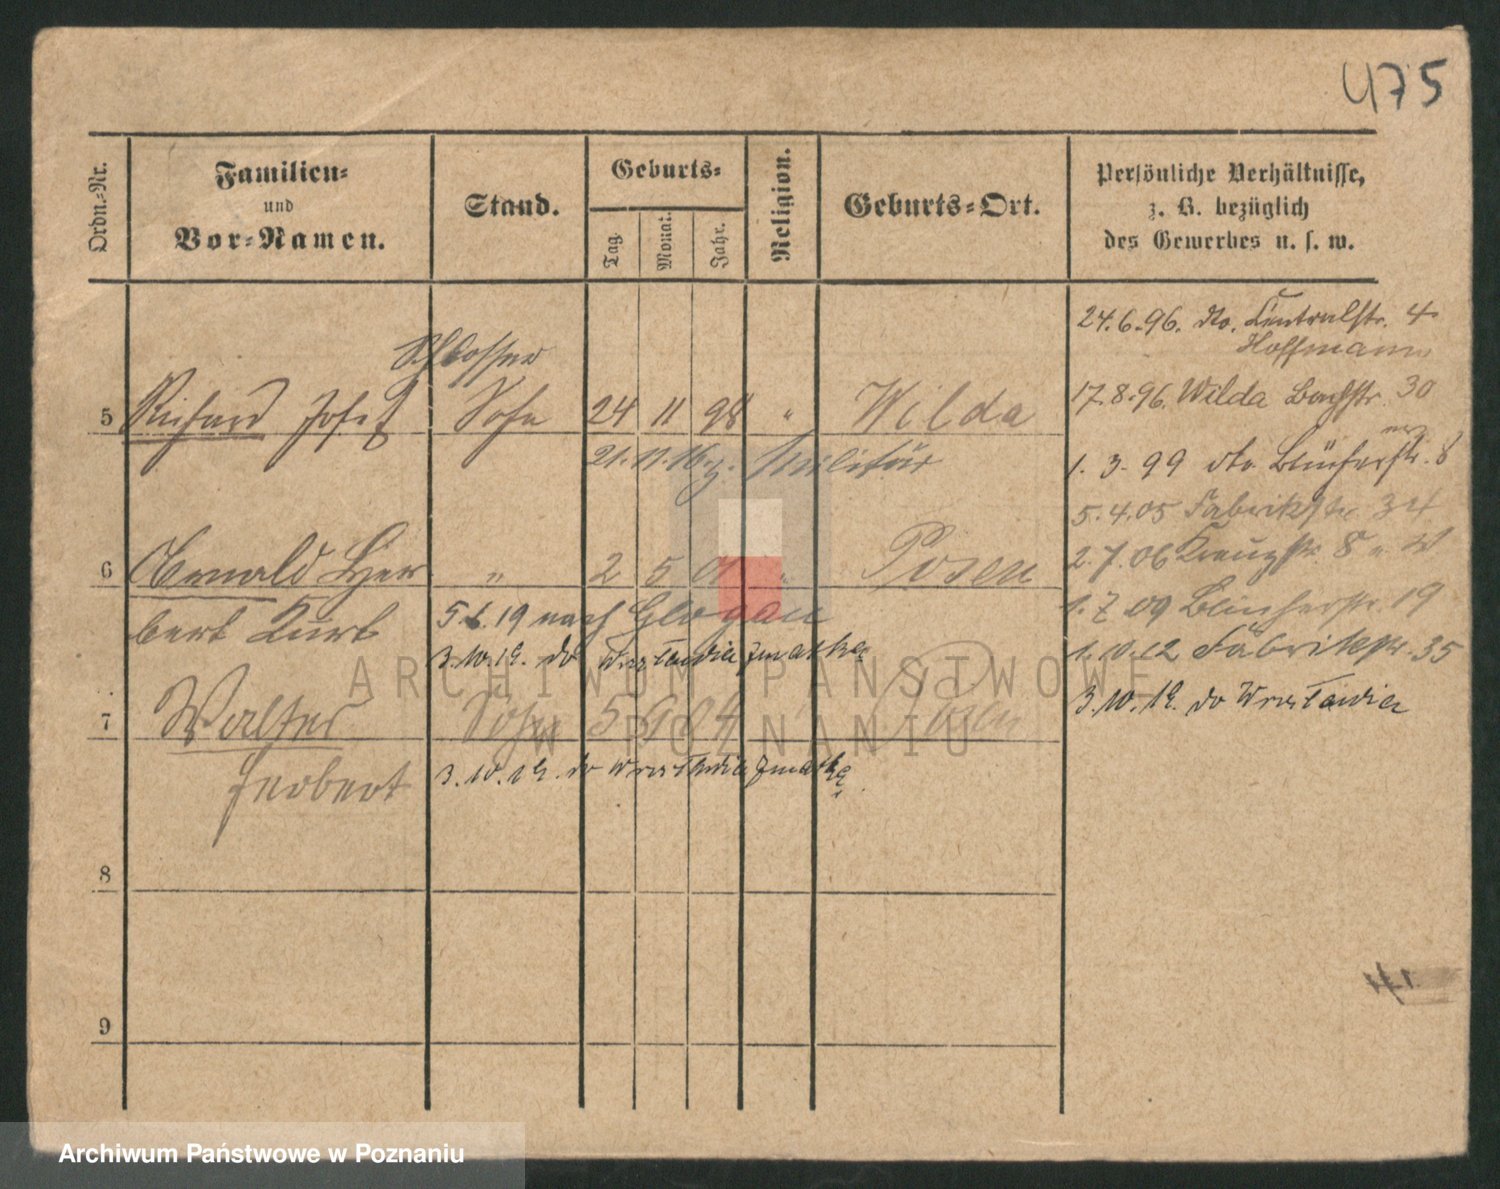 475
Ordn.-Nr.
Familien-
und
Vor-Namen.
Stand.
Geburts-
Tag.
Monat.
Jahr.
Religion.
Geburts-Ort.
Persönliche Verhältnisse,
z. B. bezüglich
des Gewerbes u. s. w.
24.6.96. dto. Centralstr. 4
Hoffmann
Schlosser
17.8.96. Wilda Bachstr. 30
5 Richard Josef Sohn 24 11 98 " Wilda
21.11.16 z. Militär
1. 3. 99 dto Blücherstr. 8
5.4.05 Fabrikstr 34
2.7.06 Kreuzstr. 8
6 Ewald Her " 2 5 01 " Posen
bert Kurt
5.6.19 nach Glogau
1.7.09 Blücherstr. 19
3.10.19. do Wrocławia z matką
1.10.12 Fabrikstr. 35
3.10.19. do Wrocławia
7 Walter Sohn 5 9 04 Posen
Herbert
3.10.19. do Wrocławia z matką
8
9
ARCHIWUM PAŃSTWOWE
W POZNANIU
Archiwum Państwowe w Poznaniu